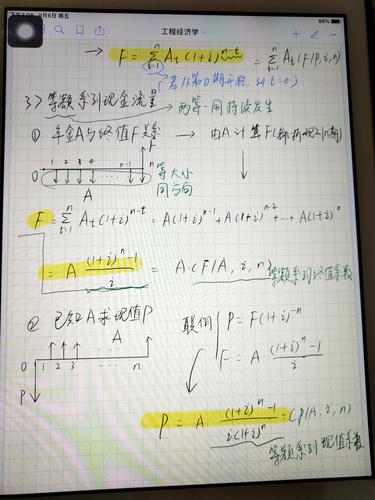 9月6日 周五
96%
工程经济学
→ F = Σ(t=1→n) At(1+i)^(n-t) = Σ(t=1→n) At(F/P,i,n)
(若从第0期开始, 则 t=0)
3> 等额系列现金流量 → 两等一同持续发生
① 年金A与终值F关系 → 由A计算F
F
0 1 2 3 4 ... n-1 n
等大小
同方向
A
F = Σ(t=1→n) At(1+i)^(n-t) = A(1+i)^(n-1) + A(1+i)^(n-2) + … + A(1+i)^0
= A ((1+i)^n - 1)/i = A·(F/A, i, n) 等额系列终值系数
② 已知A求现值P
联侧 { P = F(1+i)^-n
F = A ((1+i)^n - 1)/i
A
0 1 2 3 ... n
P
P = A· ((1+i)^n - 1)/(i(1+i)^n) = (P/A, i, n)
等额系列现值系数